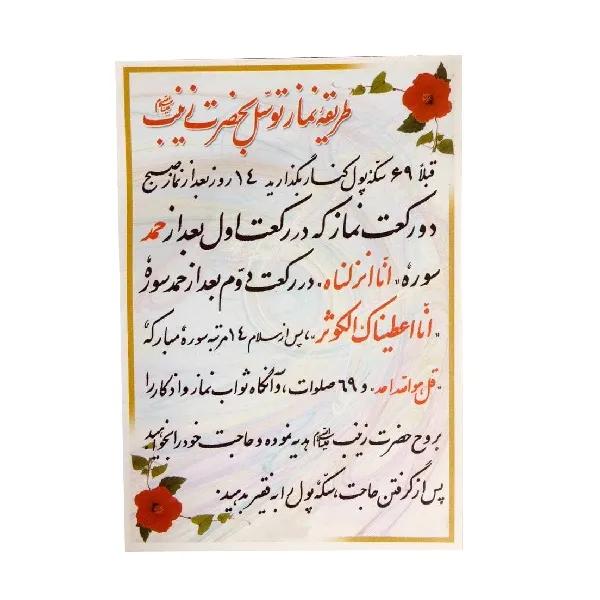 طریقهٔ نماز توسّل بحضرت زینب علیهاالسلام
قبلاً ۶۹ سکه پول کنار بگذارید ۱۴ روز بعد از نماز صبح
دو رکعت نماز که در رکعت اول بعد از حمد
سوره «انا انزلناه» در رکعت دوّم بعد از حمد سورهٔ
«انّا اعطیناک الکوثر»، پس از سلام ۱۴ مرتبه سورهٔ مبارکهٔ
«قل هو الله احد» و ۶۹ صلوات، و آنگاه ثواب نماز و اذکار را
بروح حضرت زینب علیهاالسلام هدیه نموده و حاجت خود را بخواهید
پس از گرفتن حاجت، سکّه پول را به فقیر بدهید.